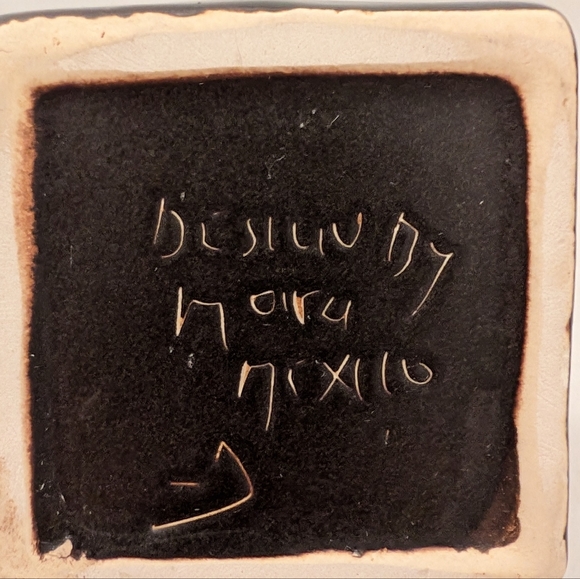 DESIGN BY
Mara
MEXICO